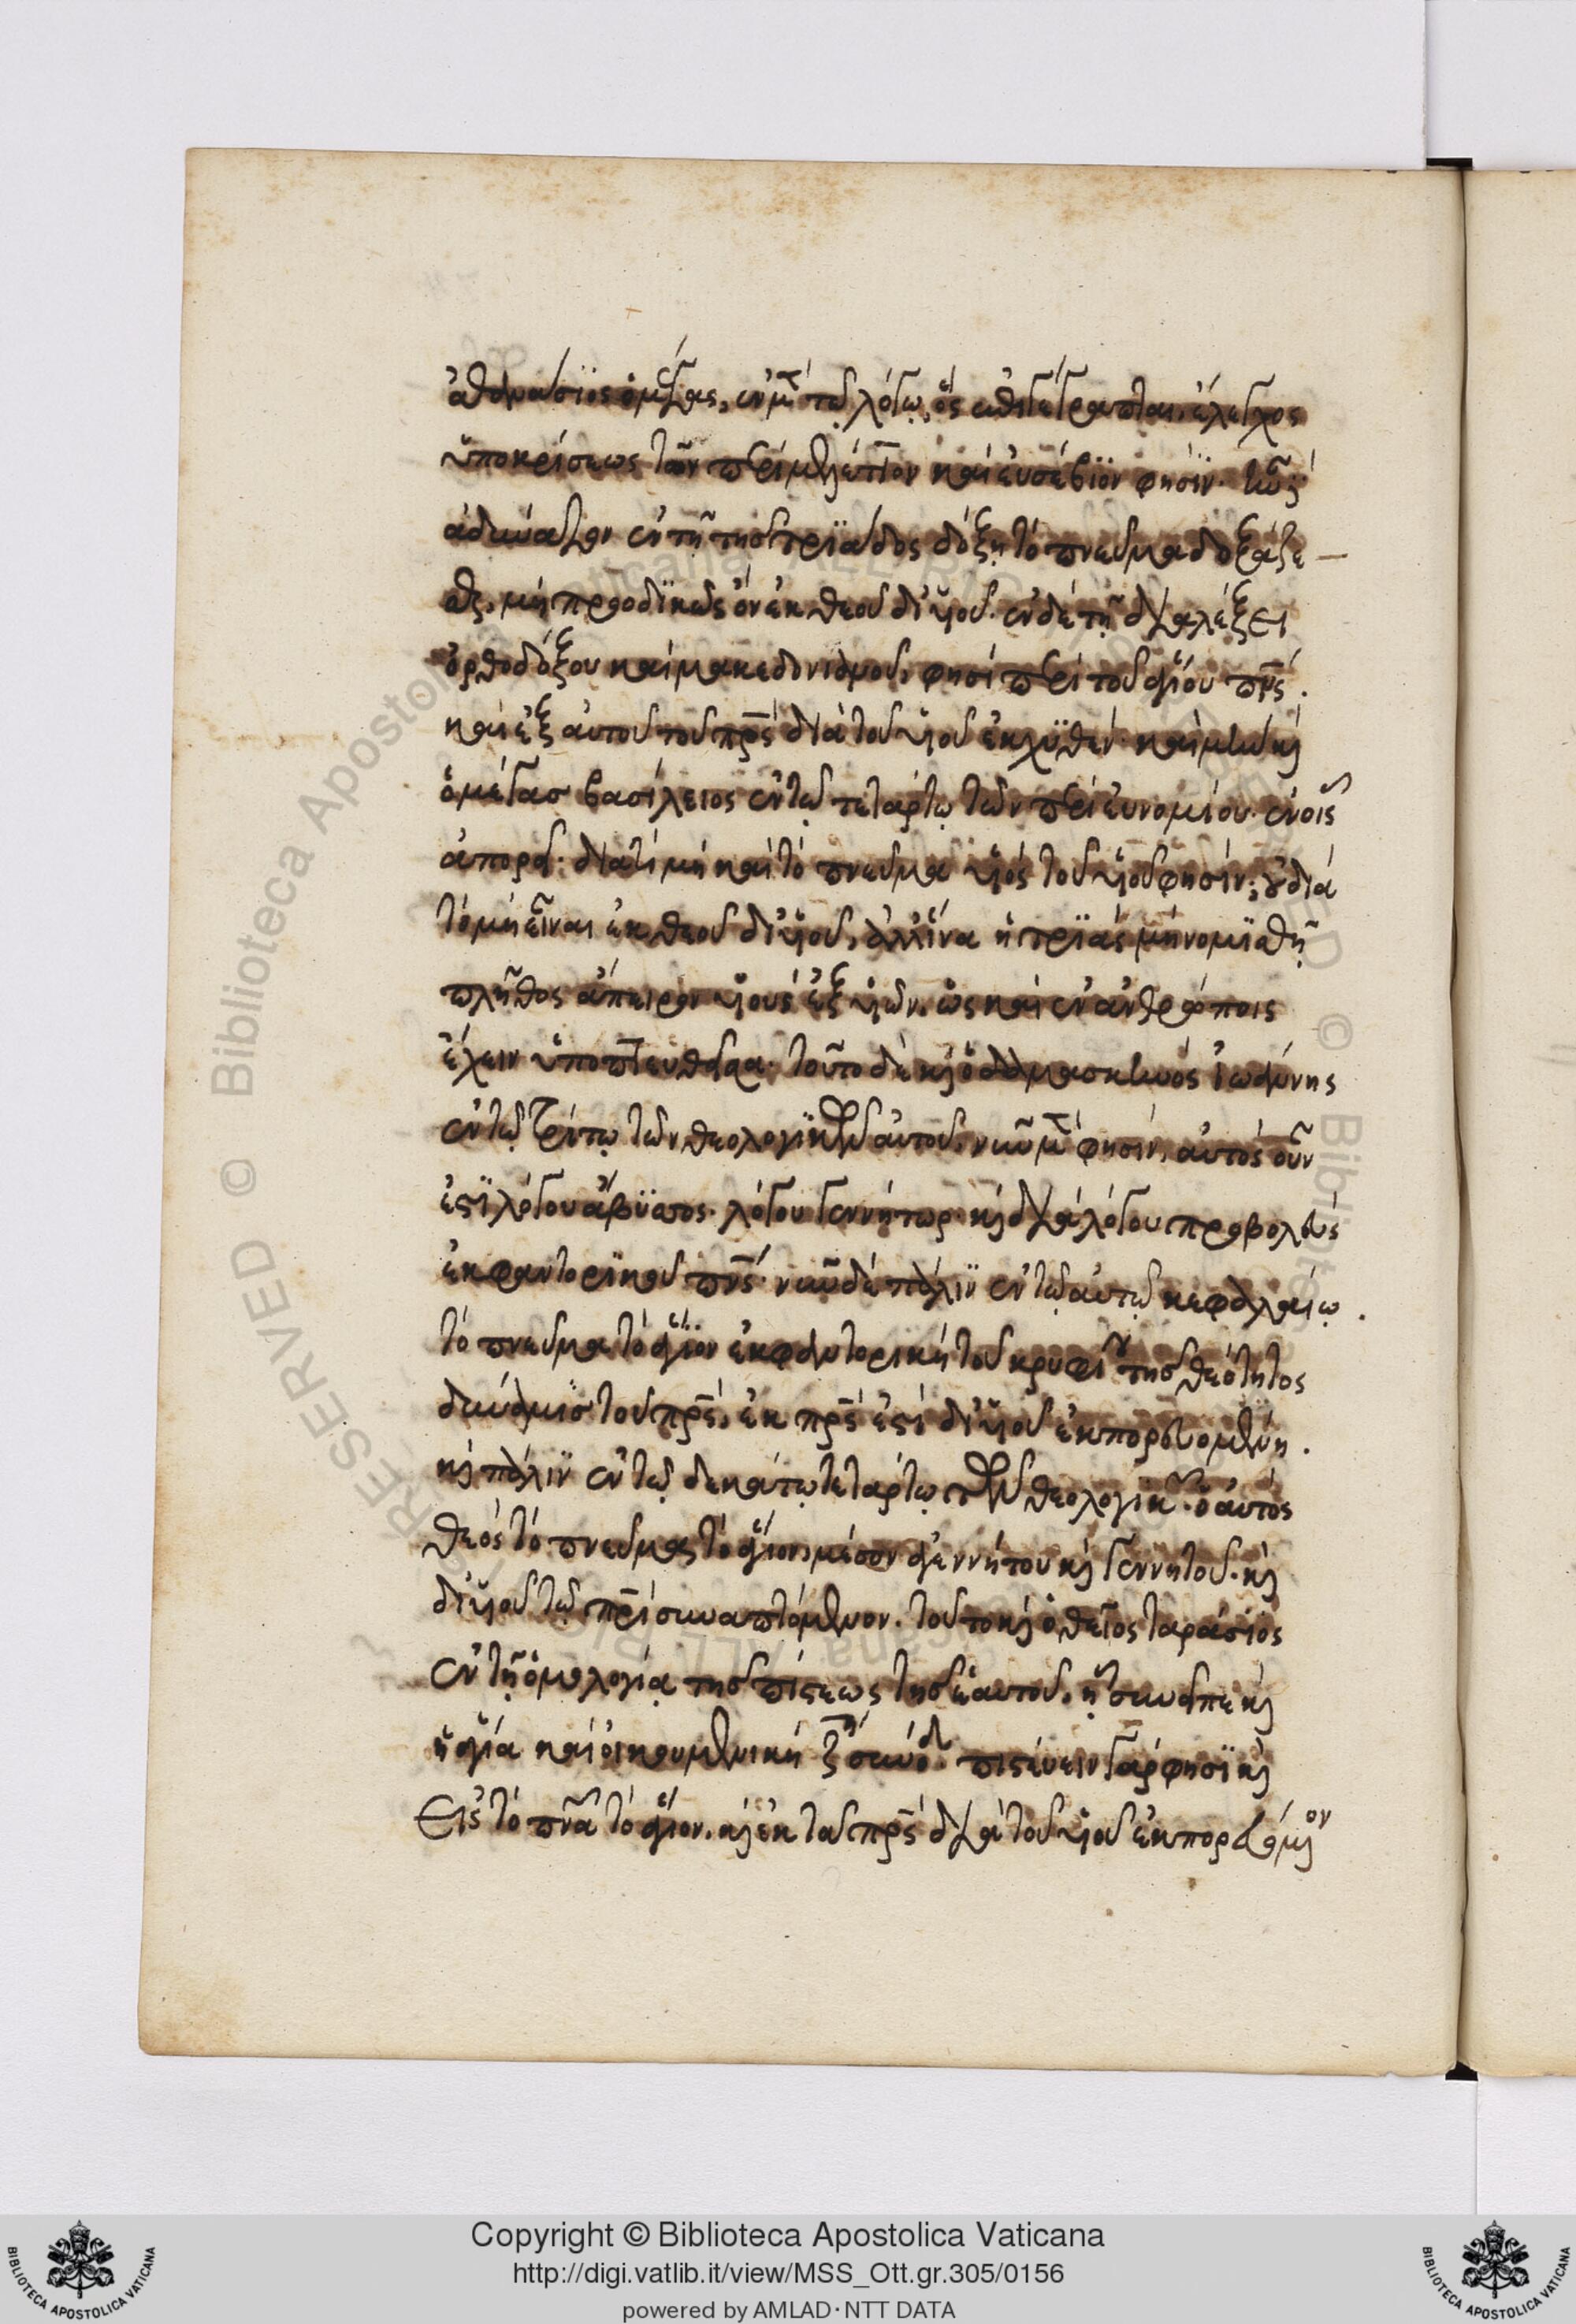 ἀθανάσϊος ὁ μέγας, ἐν μὲν τῷ λόγῳ, ὃς ἐπιγέγραπται, ἔλεγχος
ὑποκρίσεως τῶν περὶ μελέτϊον καὶ εὐσέβϊον φησὶν· τῶν
ἀδυνάτων ἐν τῇ τῆς τρϊάδος δόξῃ τὸ πνεῦμα δοξάζε–
σθαι, μὴ προοδϊκῶς ὂν ἐκ θεοῦ δι' υἱοῦ. ἐν δὲ τῇ διαλέξει
ὀρθοδόξου καὶ μακεδονισμοῦ, φησὶ περὶ τοῦ ἁγίου πνς.
καὶ ἐξ αὐτοῦ τοῦ πρς διὰ τοῦ υἱοῦ ἐκχϋθέν· καὶ μὴν καὶ
ὁ μέγασ βασίλειος ἐν τῷ τετάρτῳ τῶν περὶ εὐνομίου. ἐν οἷς
ἀπορεῖ· διατί μὴ καὶ τὸ πνεῦμα υἱὸς τοῦ υἱοῦ φησίν; οὐ διὰ
τὸ μὴ εἶναι ἐκ θεοῦ δι' υἱοῦ, ἀλλ' ἵνα ἡ τρϊὰς μὴ νομϊσθῇ
πλῆθος ἄπειρον υἱοὺς ἐξ υἱῶν, ὡς καὶ ἐν ἀνθρώποις
ἔχειν ὑποπτευθεῖσα· τοῦτο δὲ καὶ ὁ δαμασκηνὸς ἰωάννης
ἐν τῷ τρίτῳ τῶν θεολογϊκῶν αὐτοῦ, νῦν μὲν φησὶν, αὐτὸς οὖν
ἐστϊ λόγου ἄβϋσσος. λόγου γεννήτωρ. καὶ διὰ λόγου προβολεὺς
ἐκφαντορϊκοῦ πνς· νῦν δὲ πάλϊν ἐν τῷ αὐτῷ κεφαλαίῳ.
τὸ πνεῦμα τὸ ἅγϊον ἐκφαντορικὴ τοῦ κρυφίου τῆσ θεότητος
δύναμισ τοῦ πρς, ἐκ πρς ἐστὶ δι' υἱοῦ ἐκπορευομένη.
καὶ πάλϊν ἐν τῷ δεκάτῳ τετάρτῳ τῶν θεολογικῶν. ὁ αὐτὸς
θεὸς τὸ πνεῦμα τὸ ἅγιον, μέσον ἀγεννήτου καὶ γεννητοῦ. καὶ
δι' υἱοῦ τῷ πρὶ συναπτόμενον. τοῦτο καὶ ὁ θεῖος ταράσϊος
ἐν τῇ ὁμολογίᾳ τῆσ πίστεως τῆσ ἑαυτοῦ, ᾗ συνείπε καὶ
ἡ ἁγία καὶ οἰκουμενικὴ ζ σύνοδ. πιστεύειν γὰρ φησϊ καὶ
Εἰς τὸ πνα τὸ ἅγιον. καὶ ἐκ τοῦ πρς διὰ τοῦ υἱοῦ ἐκπορευόμενον
Copyright © Biblioteca Apostolica Vaticana
http://digi.vatlib.it/view/MSS_Ott.gr.305/0156
powered by AMLAD·NTT DATA